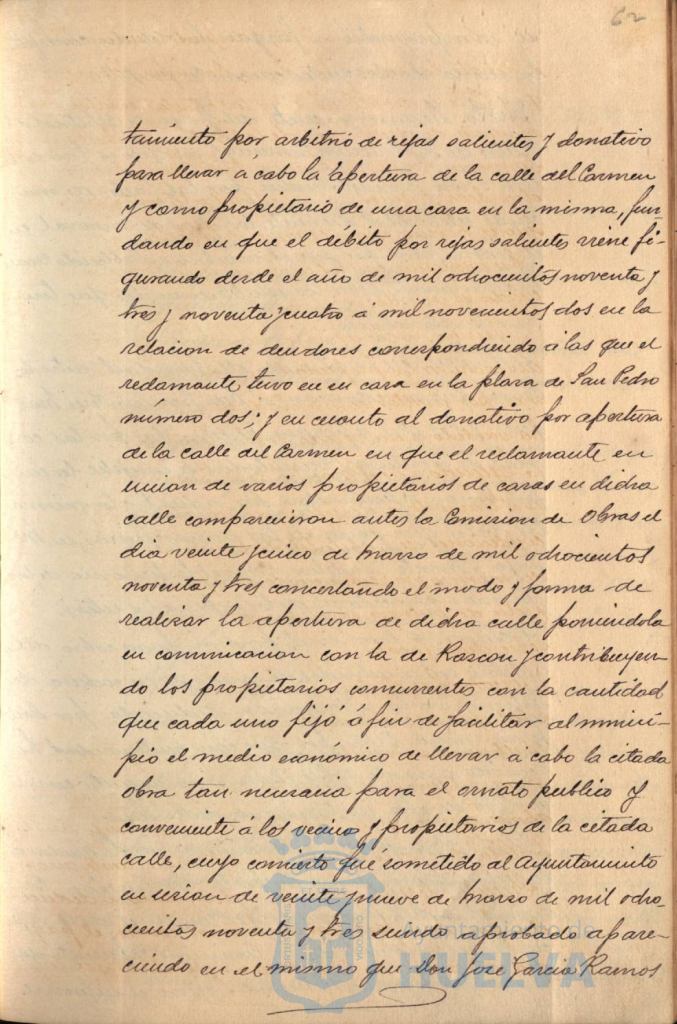 62
tamiento por arbitrio de rejas salientes y donativo
para llevar á cabo la apertura de la calle del Carmen
y como propietario de una casa en la misma, fun-
dando en que el débito por rejas salientes viene fi-
gurando desde el año de mil ochocientos noventa y
tres y noventa y cuatro á mil novecientos dos en la
relacion de deudores correspondiendo á las que el
reclamante tuvo en su casa en la plaza de San Pedro
número dos; y en cuanto al donativo por apertura
de la calle del Carmen en que el reclamante en
union de varios propietarios de casas en dicha
calle comparecieron antes la Comision de Obras el
dia veinte y cinco de Marzo de mil ochocientos
noventa y tres concertando el modo y forma de
realizar la apertura de dicha calle poniendola
en comunicacion con la de Rascon y contribuyen-
do los propietarios concurrentes con la cantidad
que cada uno fijó á fin de facilitar al munici-
pio el medio económico de llevar á cabo la citada
obra tan necesaria para el ornato publico y
conveniente á los vecinos y propietarios de la citada
calle, cuyo concierto fué sometido al Ayuntamiento
en sesion de veinte y nueve de Marzo de mil ocho-
cientos noventa y tres siendo aprobado apare-
ciendo en el mismo que Don José Garcia Ramos
HUELVA